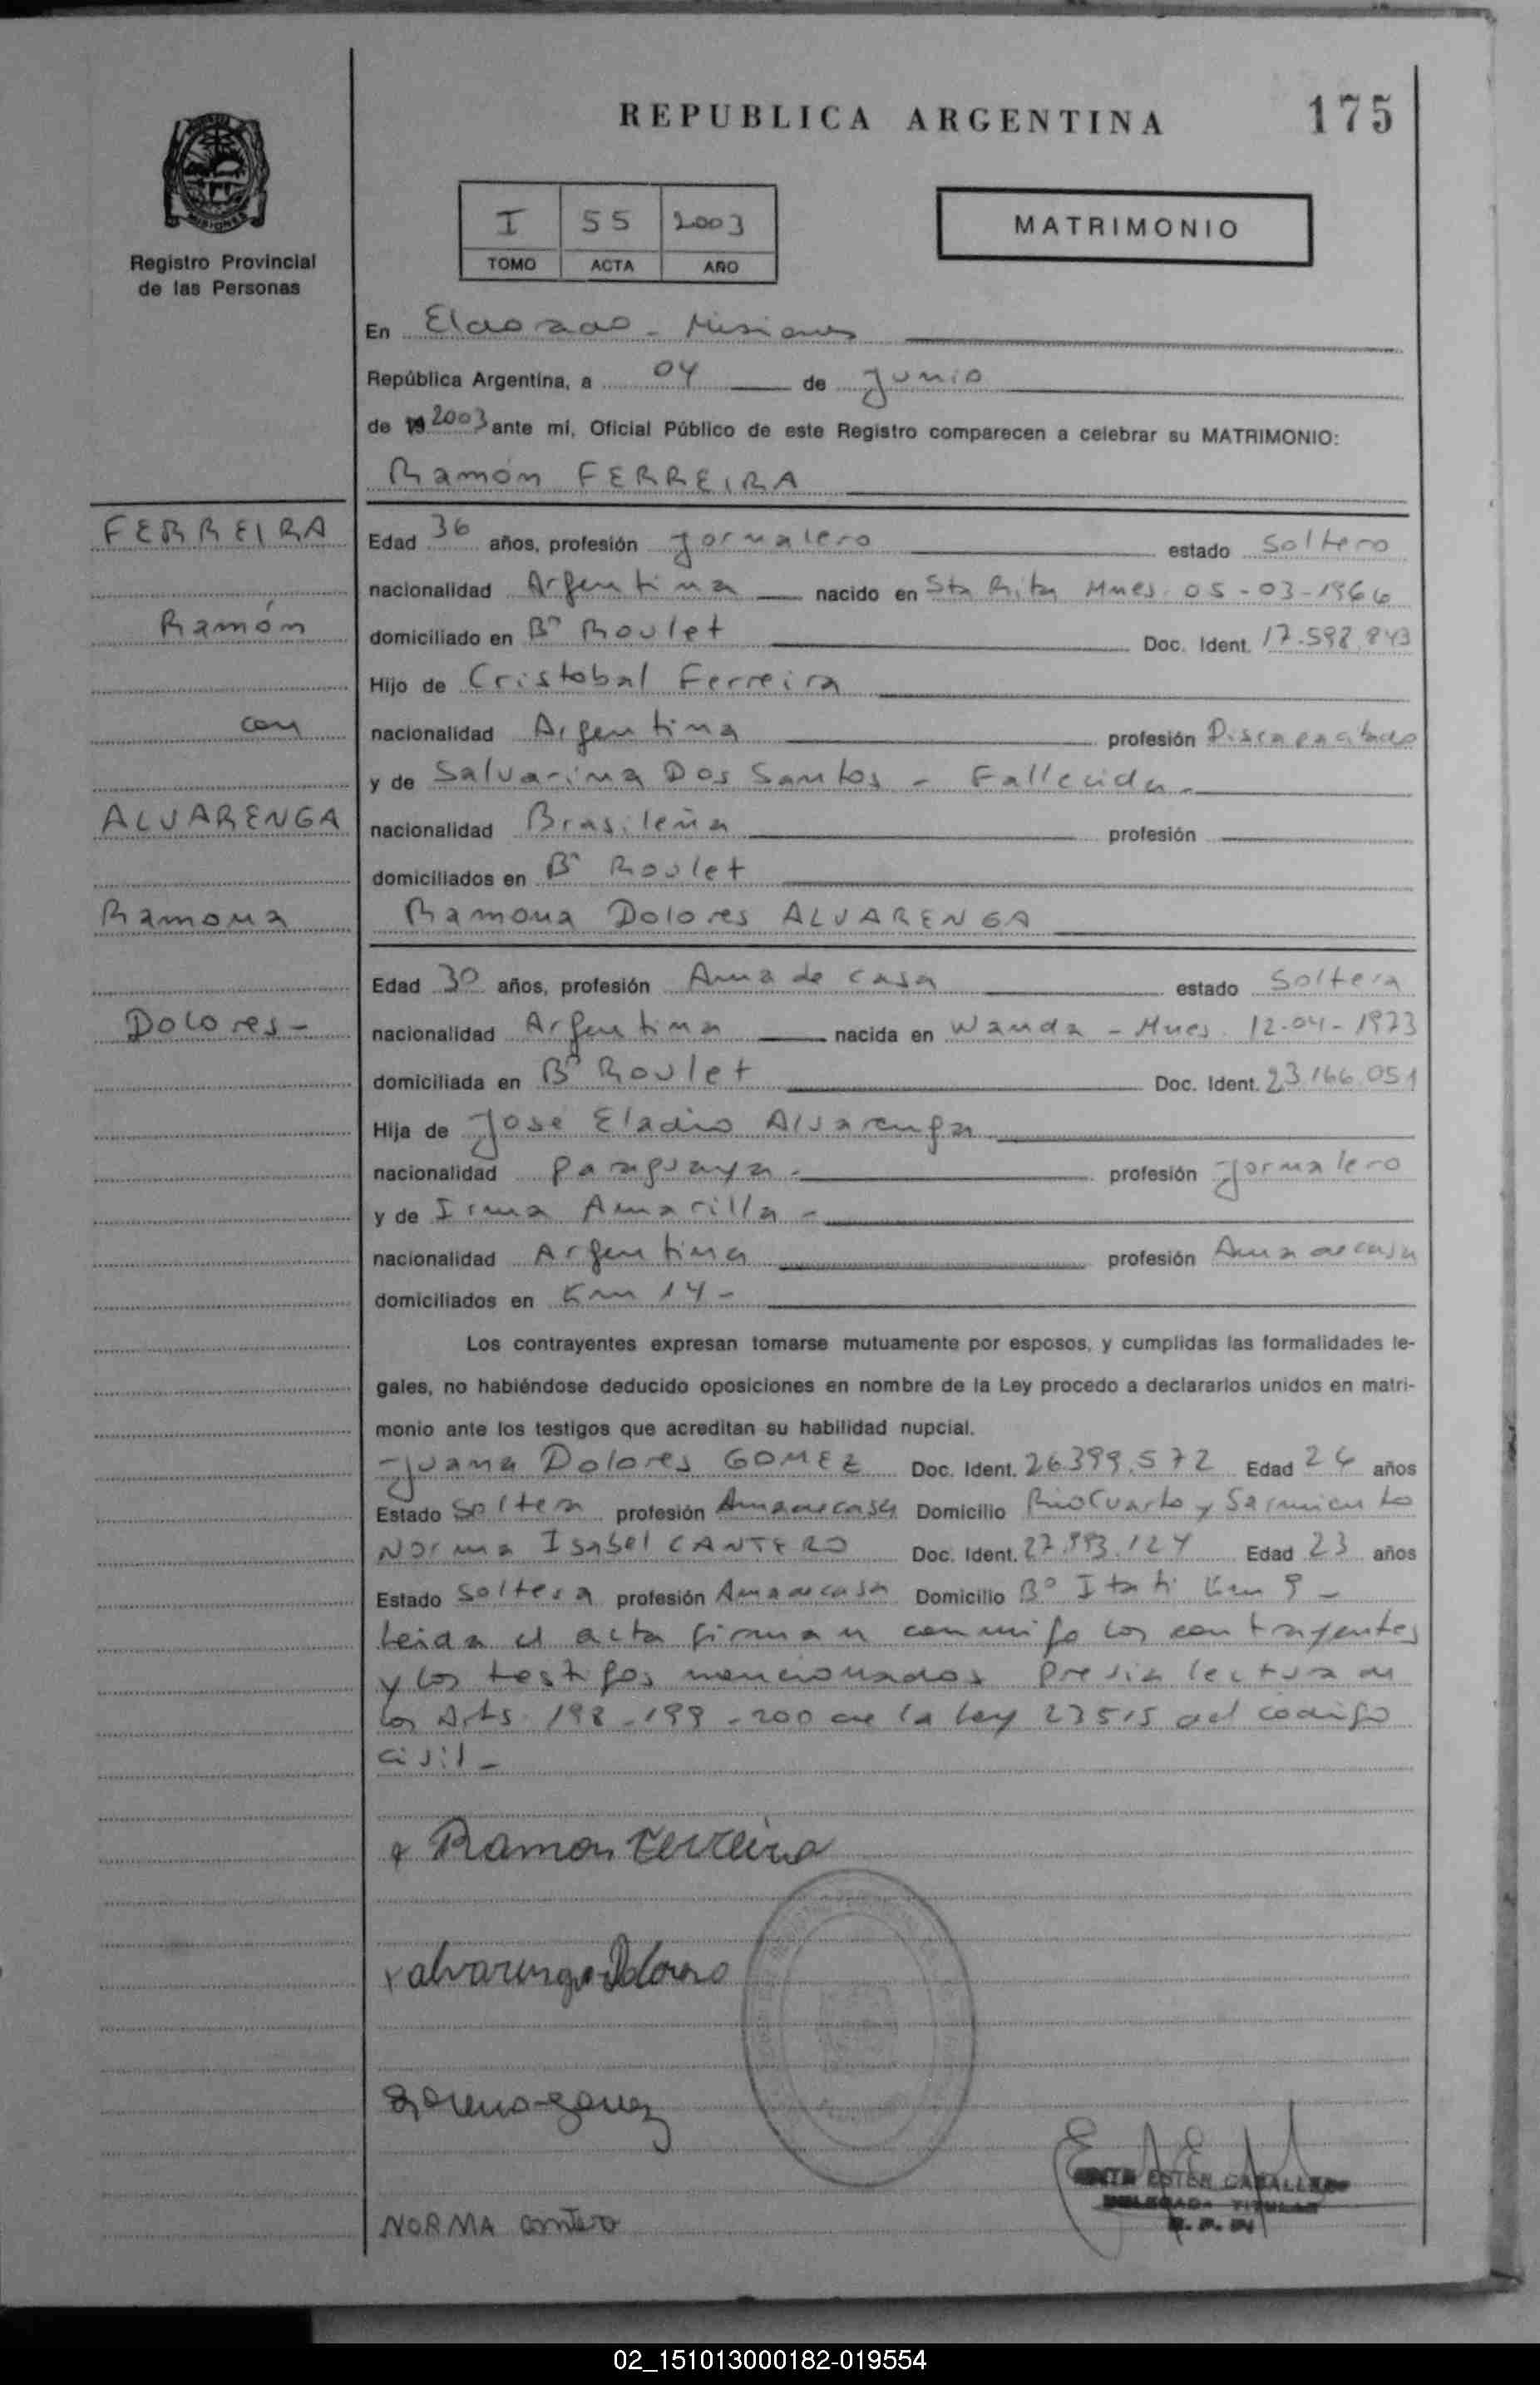 REPUBLICA ARGENTINA
175
I 55 2003
TOMO ACTA AÑO
MATRIMONIO
MISIONES
Registro Provincial
de las Personas
En Eldorado - Misiones
República Argentina, a 04 de Junio
de 19 2003 ante mí, Oficial Público de este Registro comparecen a celebrar su MATRIMONIO:
Ramón FERREIRA
FERREIRA
Ramón
con
ALVARENGA
Ramona
Dolores-
Edad 36 años, profesión Jornalero estado Soltero
nacionalidad Argentina nacido en Sta Rita Mnes. 05-03-1966
domiciliado en Bº Roulet Doc. Ident. 17.598.843
Hijo de Cristobal Ferreira
nacionalidad Argentina profesión Discapacitado
y de Salvarina Dos Santos - Fallecida-
nacionalidad Brasileña profesión
domiciliados en Bº Roulet
Ramona Dolores ALVARENGA
Edad 30 años, profesión Ama de casa estado Soltera
nacionalidad Argentina nacida en Wanda - Mnes. 12-04-1973
domiciliada en Bº Roulet Doc. Ident. 23.166.051
Hija de Jose Eladio Alvarenga
nacionalidad Paraguaya- profesión Jornalero
y de Irma Amarilla -
nacionalidad Argentina profesión Ama de casa
domiciliados en Km 14-
Los contrayentes expresan tomarse mutuamente por esposos, y cumplidas las formalidades le-
gales, no habiéndose deducido oposiciones en nombre de la Ley procedo a declararlos unidos en matri-
monio ante los testigos que acreditan su habilidad nupcial.
Juana Dolores GOMEZ Doc. Ident. 26.399.572 Edad 24 años
Estado Soltera profesión Ama de casa Domicilio Rio Cuarto y Sarmiento
Norma Isabel CANTERO Doc. Ident. 27.993.124 Edad 23 años
Estado Soltera profesión Ama de casa Domicilio Bº Itati Km 9 -
Leida el acta firman conmigo los contrayentes
y los testigos mencionados previa lectura de
los Arts. 198-199-200 de la Ley 23515 del codigo
civil-
x Ramon Ferreira
x alvarenga Dolores
NORMA Cantero
ESTER CABALLERO
DELEGADA TITULAR
02_151013000182-019554